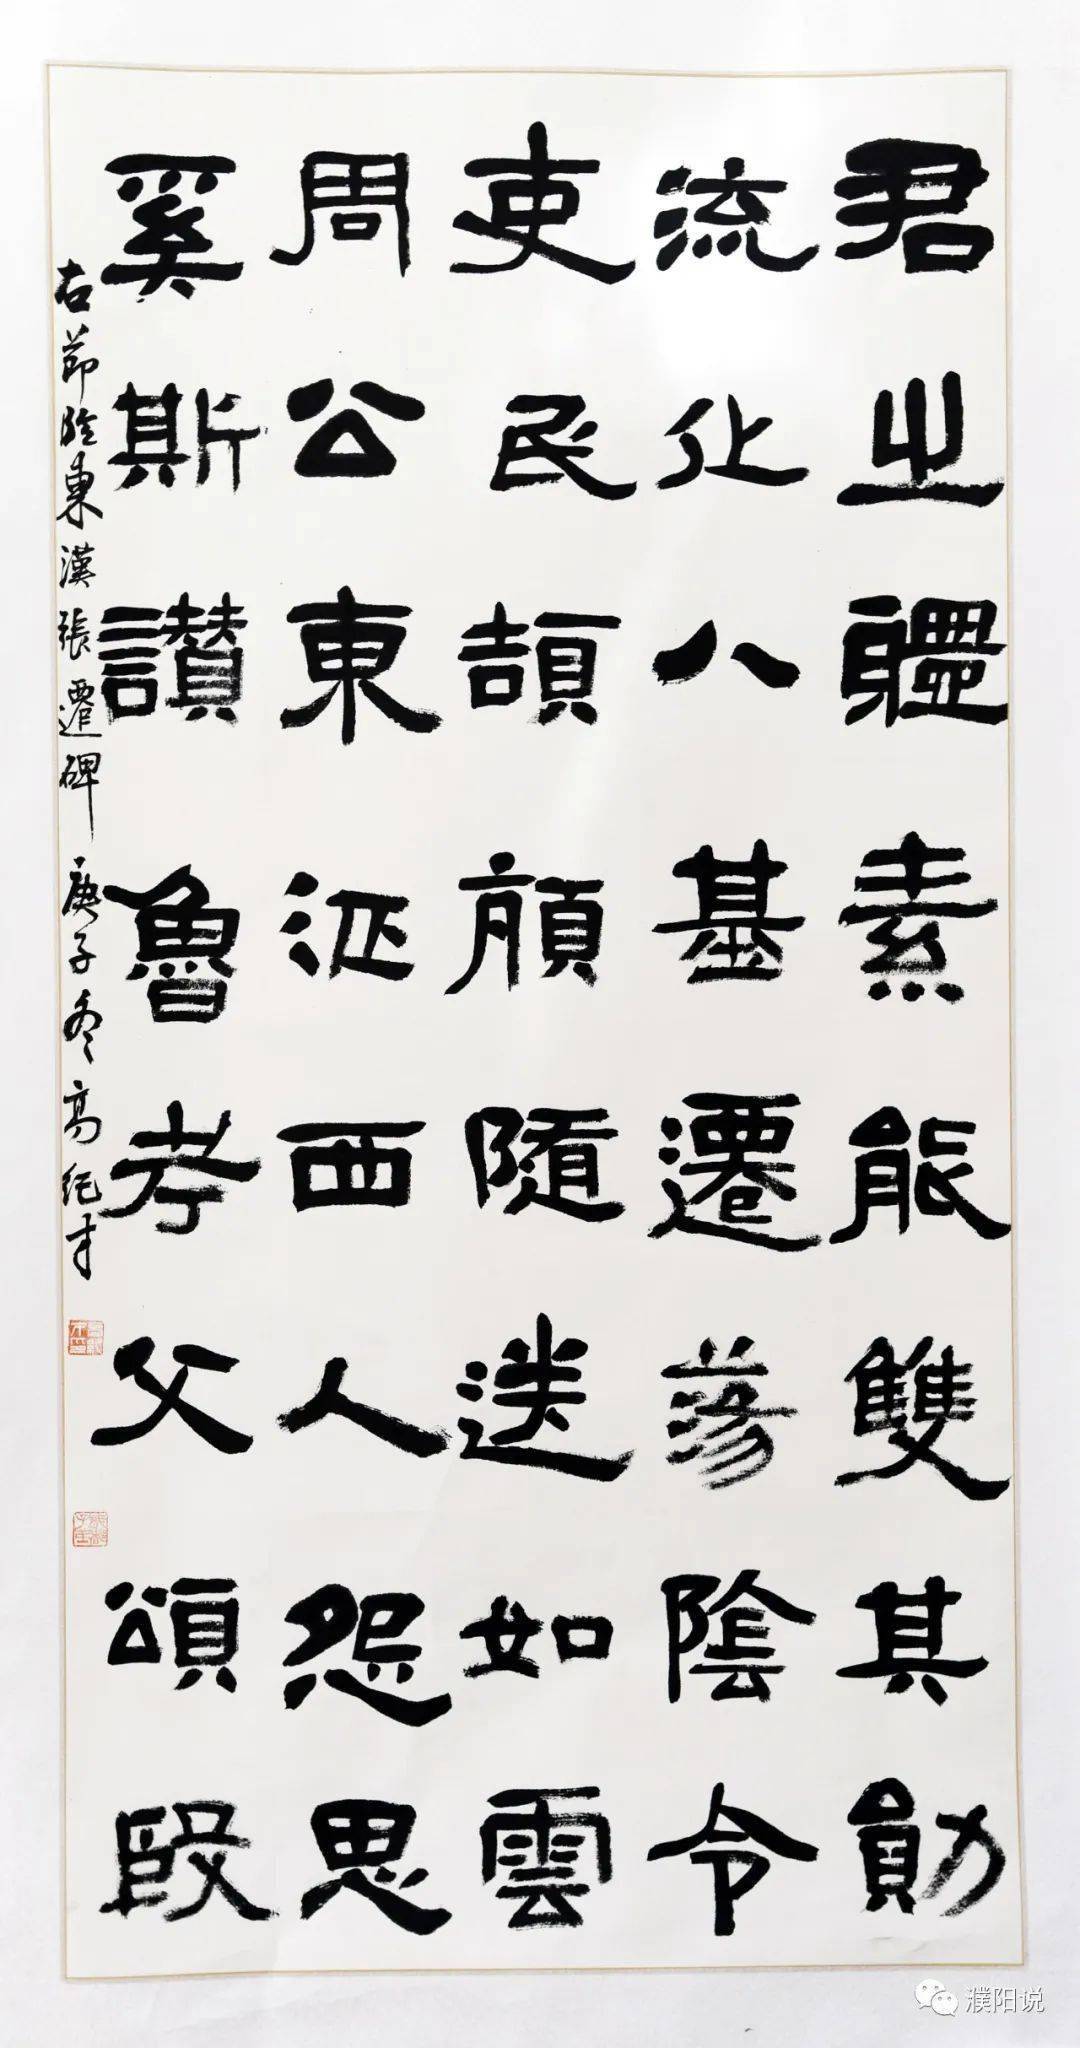 君之軆素能雙其勛
流化八基遷蕩陰令
吏民頡頏隨送如雲
周公東征西人怨思
奚斯讃魯考父頌殷
右節臨東漢張遷碑庚子冬高纪才
濮阳说